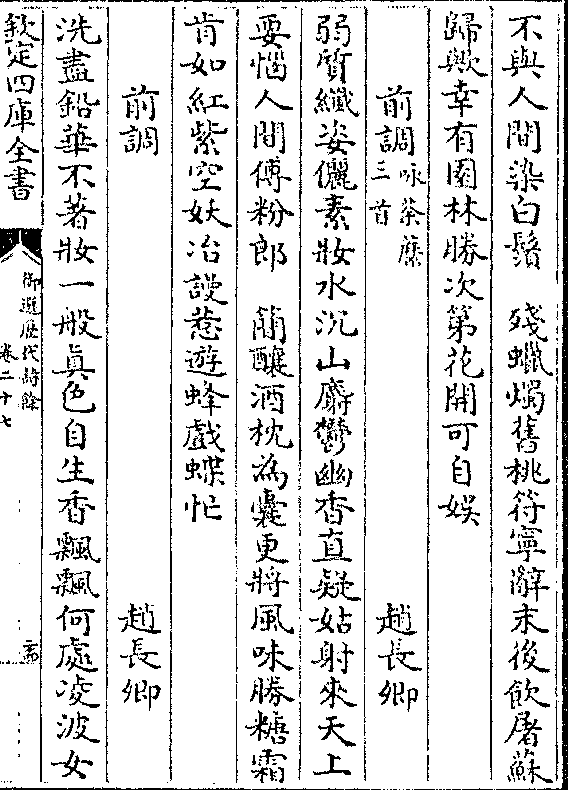 不與人間染白鬚　殘蠟燭舊桃符寧辭末後飲屠蘇
歸歟幸有園林勝次第花開可自娱
前調咏荼蘼三首　趙長卿
弱質纖姿儷素妝水沉山麝鬱幽香直疑姑射來天上
要惱人間傅粉郎　篘釀酒枕為囊更將風味勝糖霜
肯如紅紫空妖冶謾惹遊蜂戲蝶忙
前調　趙長卿
洗盡鉛華不著妝一般眞色自生香飄飄何處凌波女
欽定四庫全書
御選歷代詩餘
卷二十七